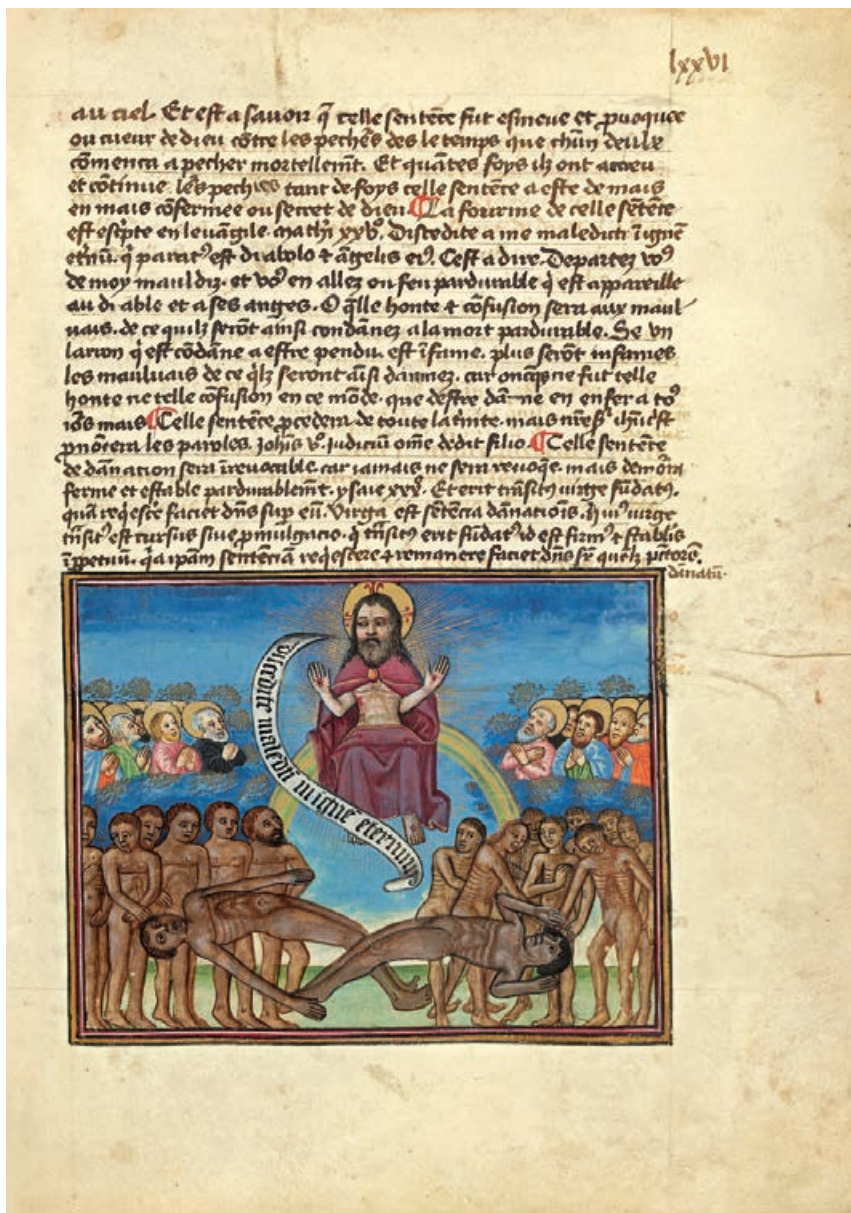 lxxvi
au ciel. Et est a savoir q̄ celle sentēce fut esmeue et ꝓuoquee
ou cueur de dieu cōtre les pechēs des le temps que chūn deulx
cōmenca a pecher mortellemt̄. Et quātes foys ilz ont accreu
et cōtinue les pechies tant de foys celle sentēce a este de mais
en mais cōfermee ou secret de dieu. ¶ La fourme de celle sētēce
est escpte en levāgile. mathi xxv°. Discedite a me maledicti ī ignē
et̄nū. q̄ parat⁹ est diabolo ⁊ āgelis ei⁹. Cest a dire. Departez vo⁹
de moy mauldiz. et vo⁹ en allez ou feu pardurable q̄ est appareille
au diable et a ses anges. O q̄lle honte ⁊ cōfusion sera aux maul
vais. de ce quilz serōt ainsi condānez a la mort pardurable. Se vn
larron q̄ est cōdāne a estre pendu. est īfame. plus serōt infames
les maulvais de ce q̄lz seront aīsi dannez. car oncq̄s ne fut telle
honte ne telle cōfusion en ce mōde. que destre dāne en enfer a to⁹
iōs mais ¶ Celle sentēce ꝓcedera de toute la t̄inite. mais nr̄e sr̄ ihūcst
ꝓnōcera les paroles. Iohis v°. Iudiciū om̄e dedit filio. ¶ Celle sentēce
de dānation sera īrevocable. car iamais ne sera revoq̄e. mais demōra
ferme et estable pardurablemt̄. ysaie xxx°. Et erit trāsit⁹ virge fūdat⁹.
quā reqēsce faciet dn̄s suꝑ eū. Virga est sētēcia danationis. virge
trāsit⁹ est cursus sive ꝓmulgacio. q̄ trāsit⁹ erit fūdat⁹ id est firm⁹ ⁊ stablis
īꝑpetuū. q̄a ipām sentēciā reqēscere ⁊ remanere faciet dn̄s sr̄ quēlz pctorē.
dānatū.
discedite maledicti in ignē eternum